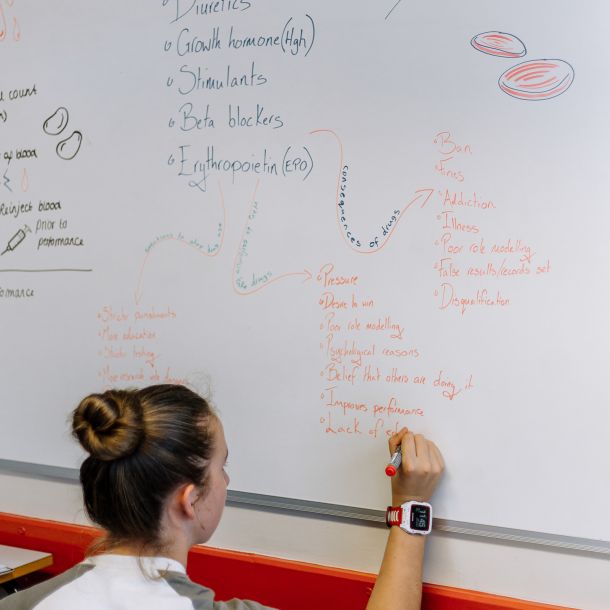 Diuretics
Growth hormone (Hgh)
Stimulants
Beta blockers
Erythropoietin (EPO)
count
blood
Reinject blood
prior to
performance
consequences of drugs
Ban
Fines
Addiction
Illness
Poor role modelling
False results/records set
Disqualification
to stop drug use
drugs
Stricter punishments
More education
Stricter testing
More research into
Pressure
Desire to win
Poor role modelling
Psychological reasons
Belief that others are doing it
Improves performance
Lack of